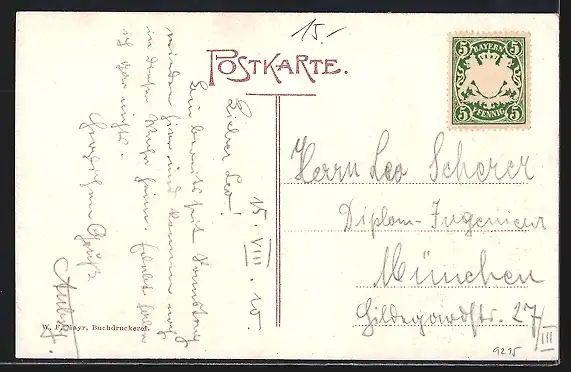 15.-
POSTKARTE.
5 BAYERN 5
5 PFENNIG 5
15. VIII. 10.
Lieber Leo!
Bin bereits seit Samstag
wieder hier und kommen
in dieser Woche
ich gar nicht.
Herzlichen Gruß
Herrn Leo Scherer
Diplom-Ingenieur
München
Hildegardstr. 27/III
W. F. Mayr, Buchdruckerei.
9215